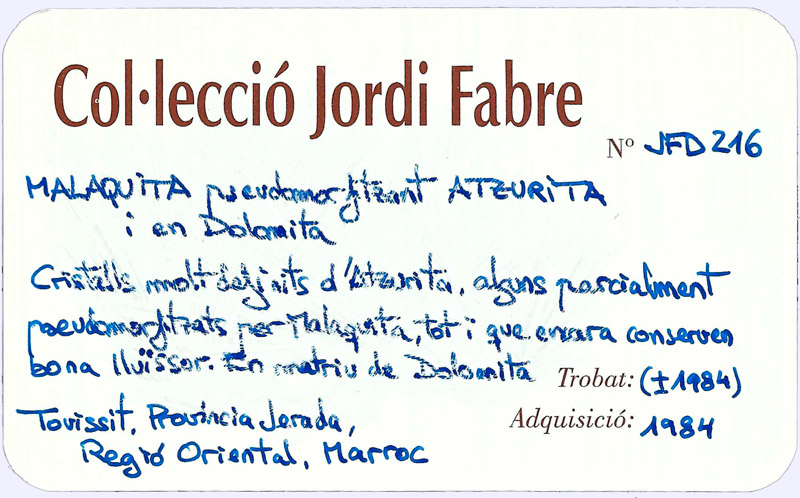 Col·lecció Jordi Fabre
Nº JFD 216
MALAQUITA pseudomorfitzant ATZURITA
i en Dolomita
Cristalls molt definits d'Atzurita, alguns parcialment
pseudomorfitzats per Malaquita, tot i que encara conserven
bona lluïssor. En matriu de Dolomita
Trobat: (±1984)
Adquisició: 1984
Touissit, Província Jerada,
Regió Oriental, Marroc